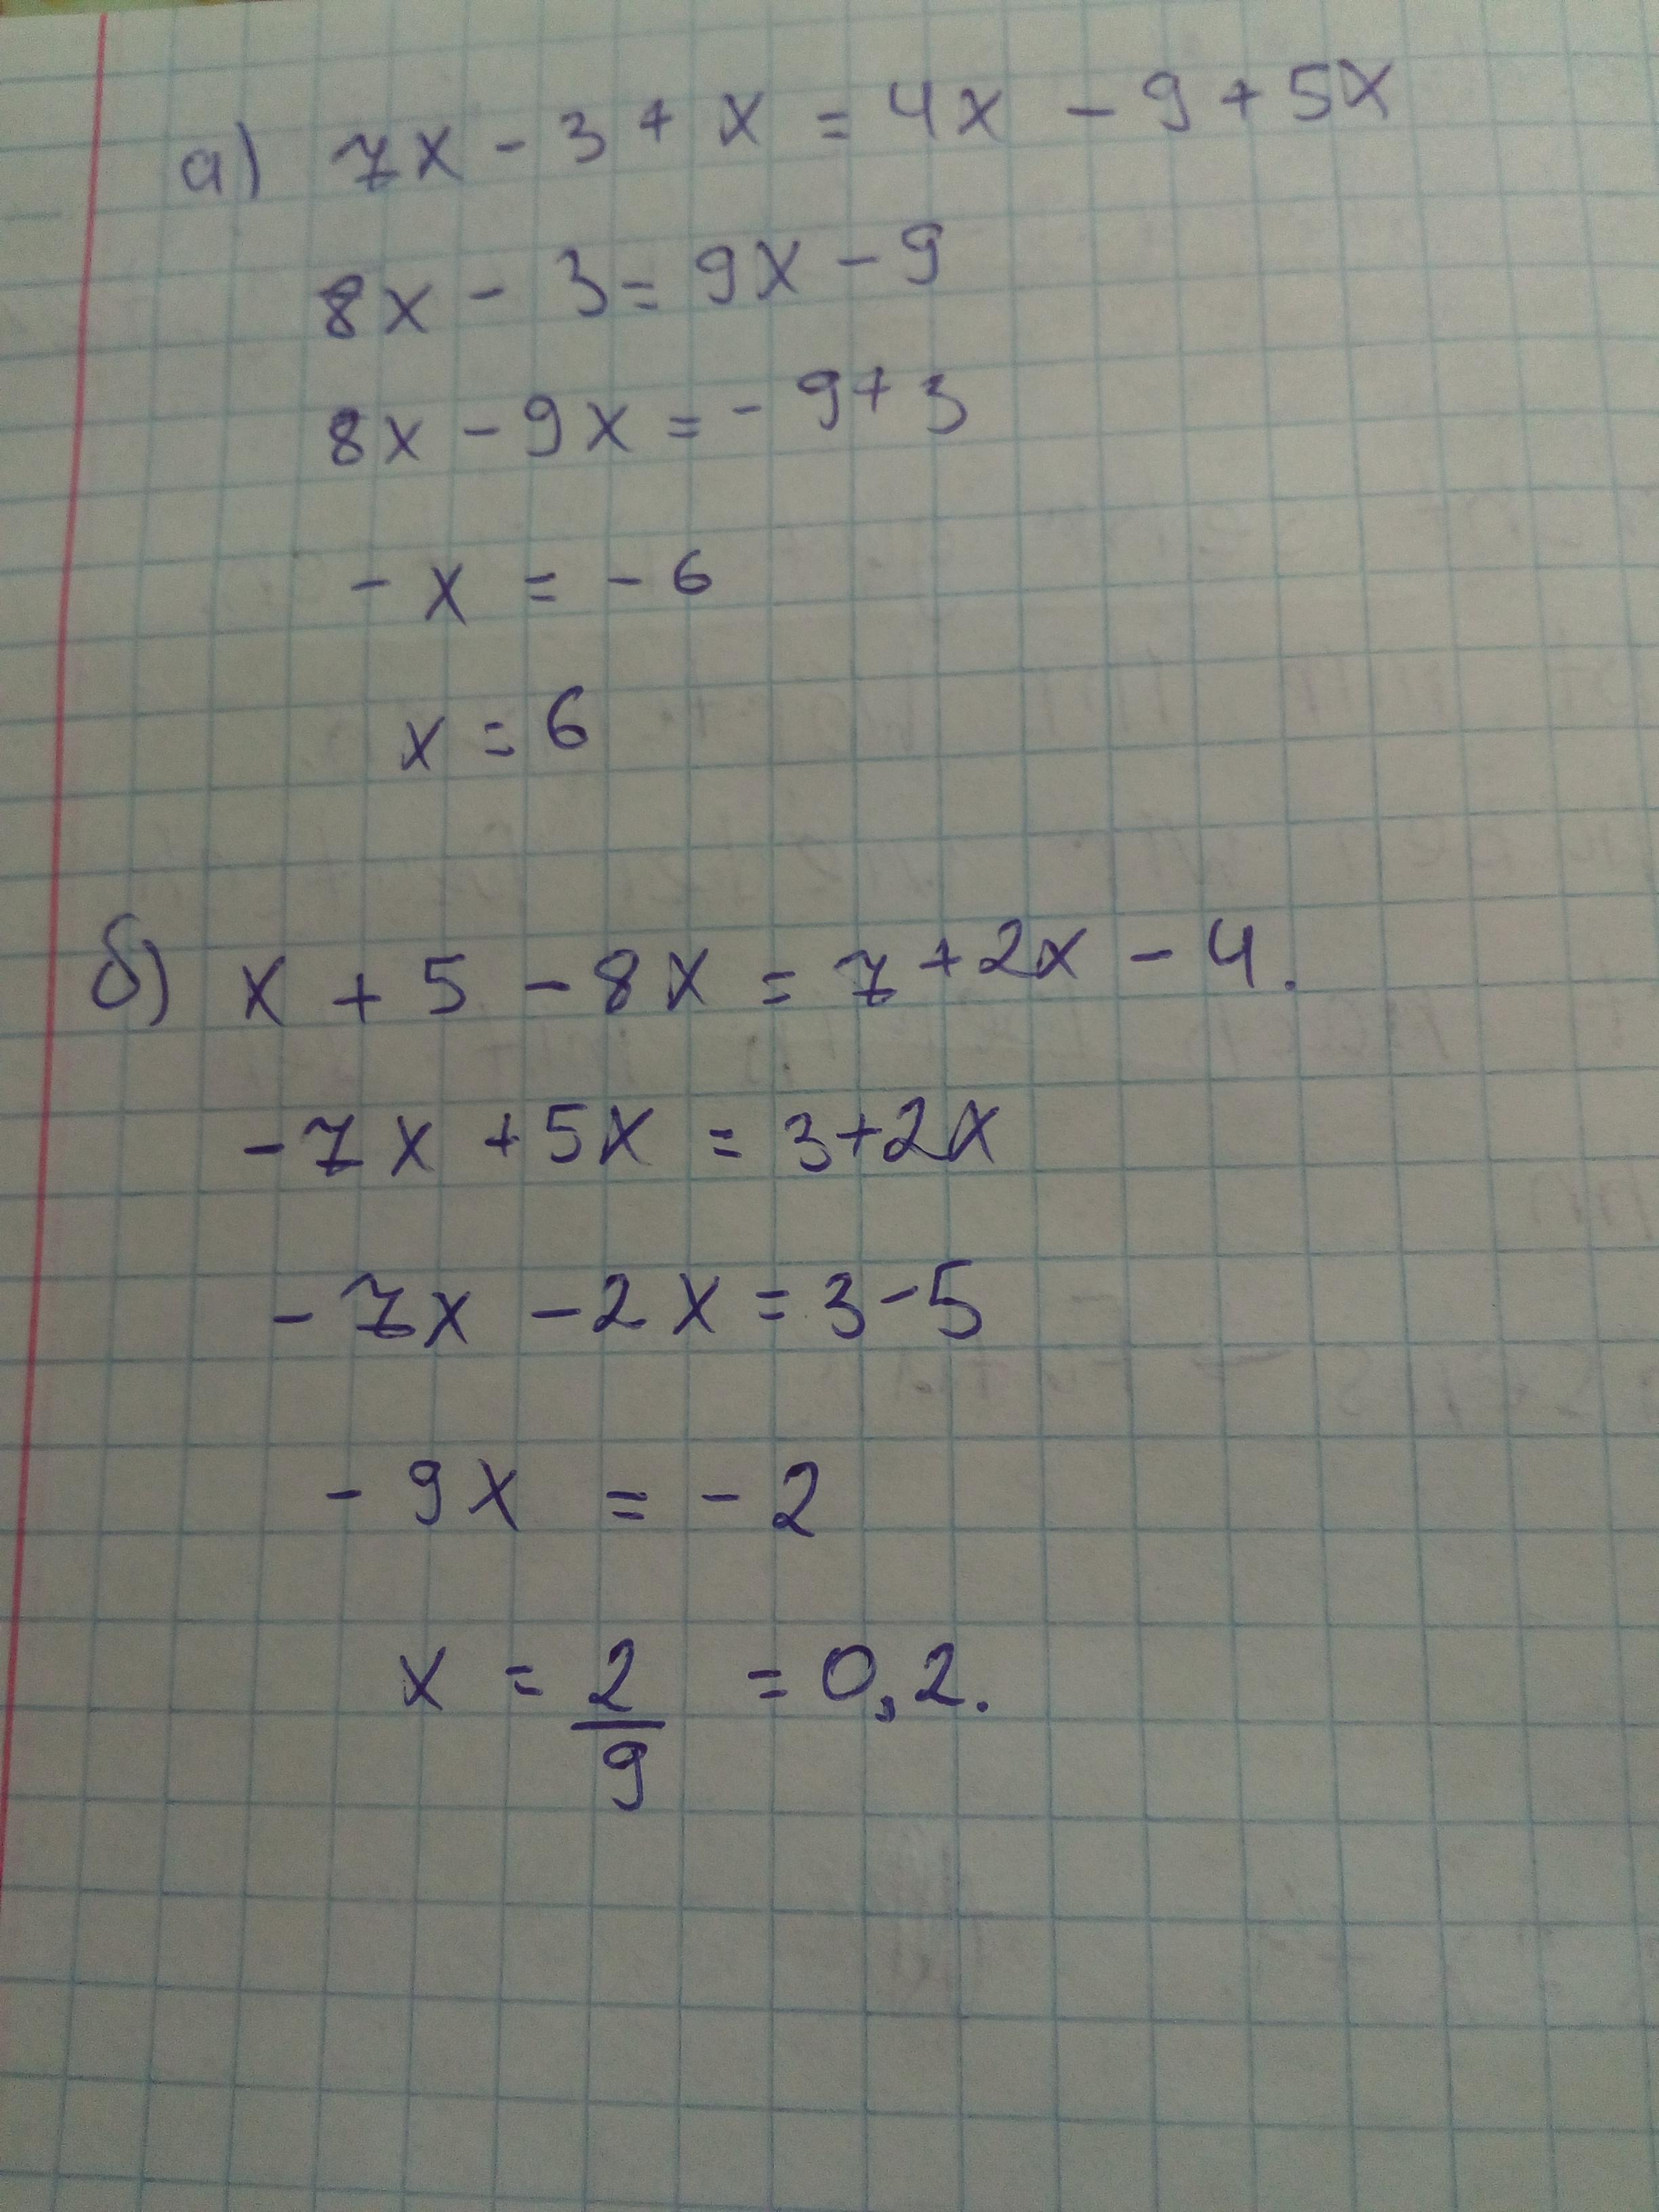 а) 7x - 3 + x = 4x - 9 + 5x
8x - 3 = 9x - 9
8x - 9x = - 9 + 3
- x = - 6
x = 6
б) x + 5 - 8x = 7 + 2x - 4.
- 7x + 5x = 3 + 2x
- 7x - 2x = 3 - 5
- 9x = - 2
x = 2/9 = 0,2.